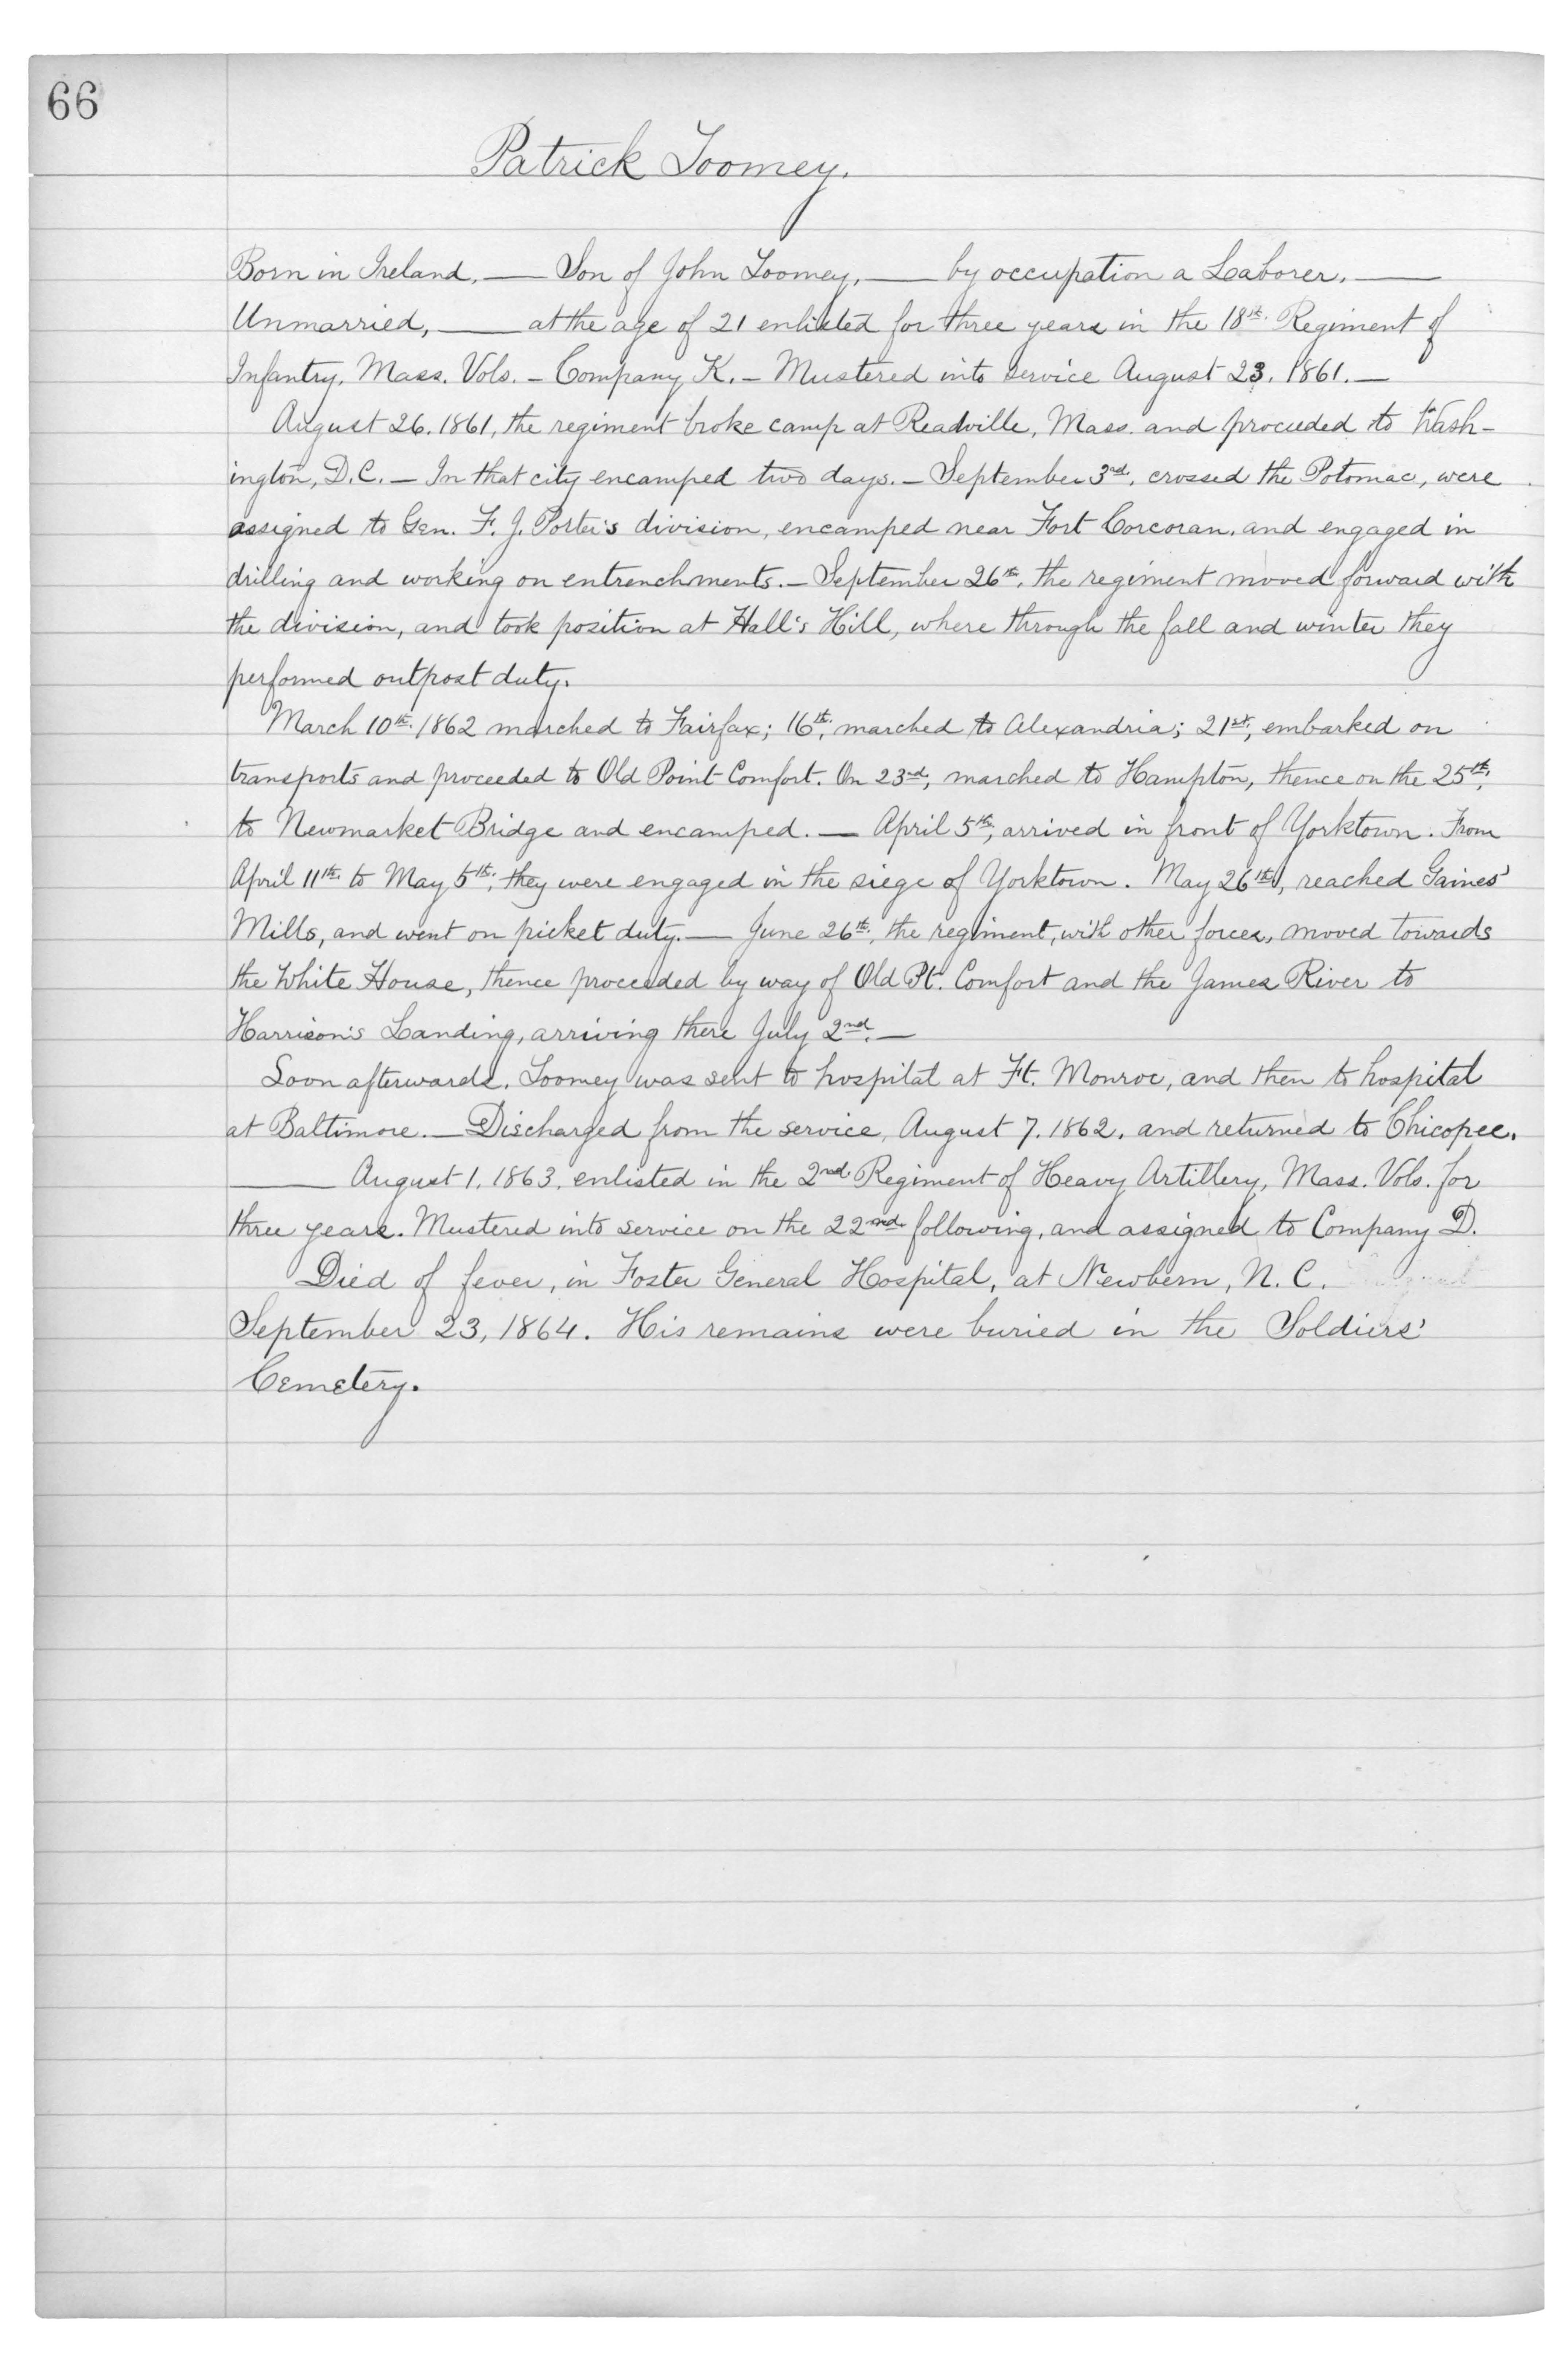 66
Patrick Toomey.
Born in Ireland, — Son of John Toomey, — by occupation a Laborer, —
Unmarried, — at the age of 21 enlisted for three years in the 18th. Regiment of
Infantry, Mass. Vols. – Company K. – Mustered into service August 23. 1861. —
August 26. 1861, the regiment broke camp at Readville, Mass. and proceeded to Wash-
ington, D.C. – In that city encamped two days. – September 3rd, crossed the Potomac, were
assigned to Gen. F. J. Porter's division, encamped near Fort Corcoran, and engaged in
drilling and working on entrenchments. – September 26th, the regiment moved forward with
the division, and took position at Hall's Hill, where through the fall and winter they
performed outpost duty.
March 10th. 1862 marched to Fairfax; 16th, marched to Alexandria; 21st, embarked on
transports and proceeded to Old Point Comfort. On 23rd, marched to Hampton, thence on the 25th,
to Newmarket Bridge and encamped. — April 5th, arrived in front of Yorktown. From
April 11th. to May 5th, they were engaged in the siege of Yorktown. May 26th, reached Gaines'
Mills, and went on picket duty. — June 26th, the regiment, with other forces, moved towards
the White House, thence proceeded by way of Old Pt. Comfort and the James River to
Harrison's Landing, arriving there July 2nd. —
Soon afterwards, Toomey was sent to hospital at Ft. Monroe, and then to hospital
at Baltimore. — Discharged from the service, August 7. 1862, and returned to Chicopee.
— August 1. 1863, enlisted in the 2nd. Regiment of Heavy Artillery, Mass. Vols. for
three years. Mustered into service on the 22nd. following, and assigned to Company D.
Died of fever, in Foster General Hospital, at Newbern, N. C.
September 23, 1864. His remains were buried in the Soldiers'
Cemetery.